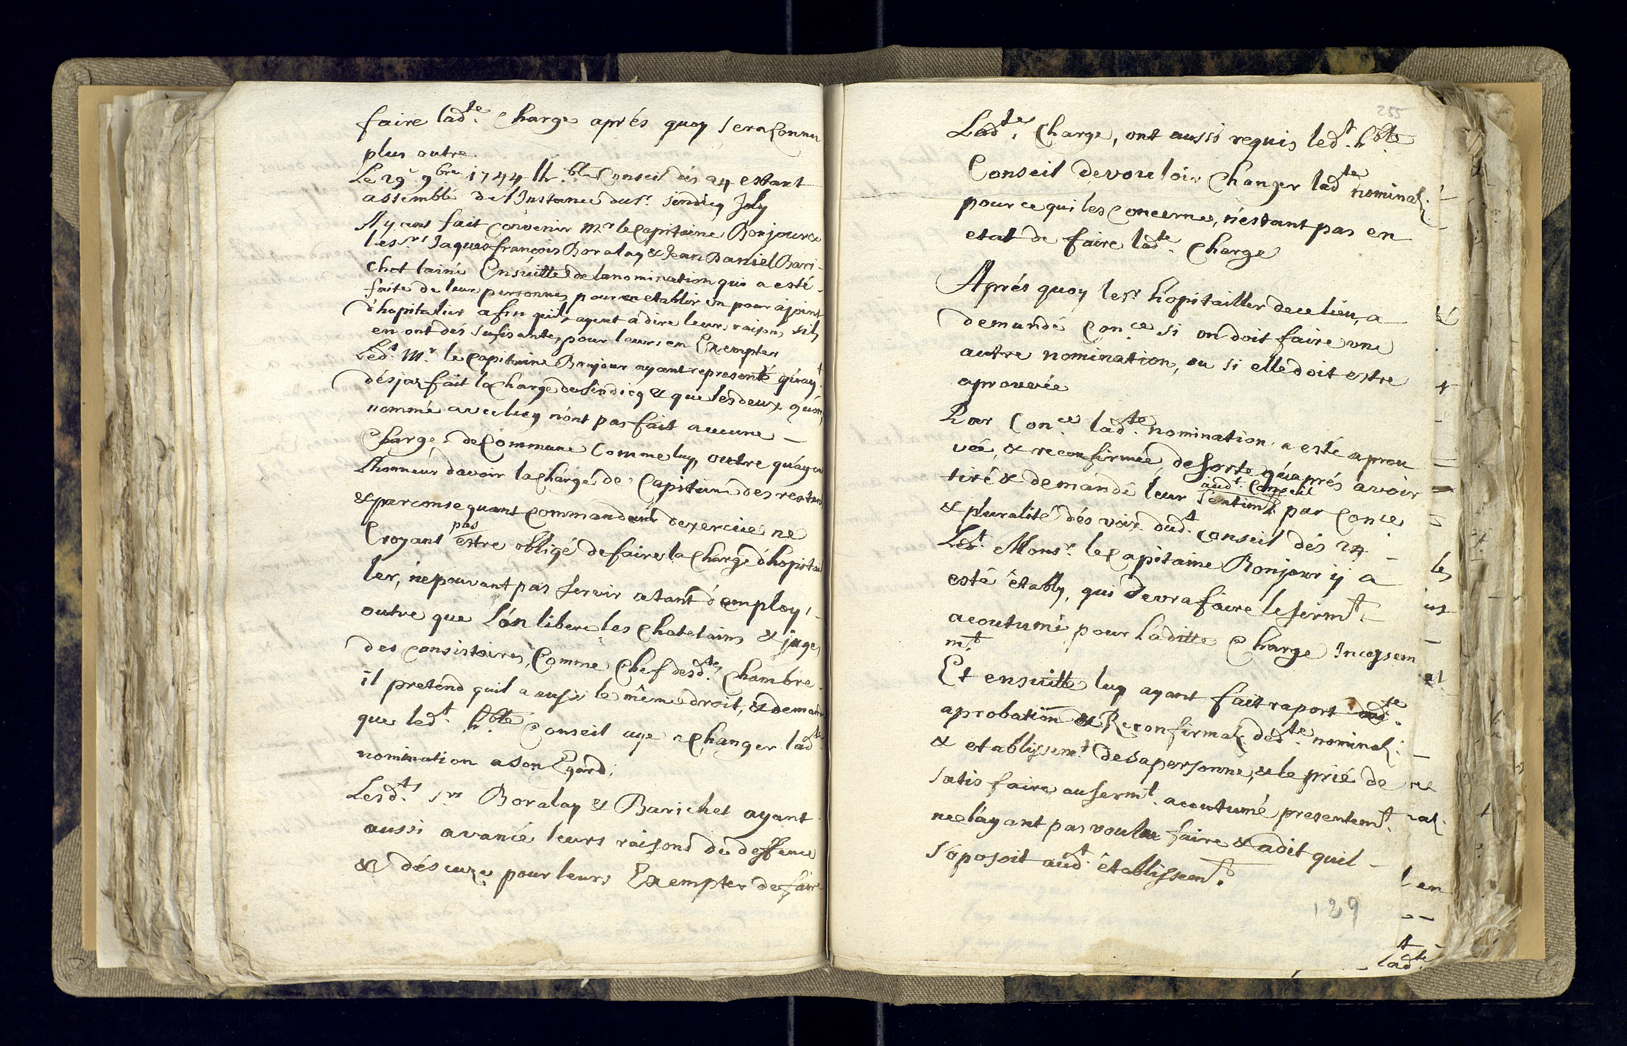 faire lad.te Charge aprés quoy sera connu
plus outre
Le 29.e 9bre 1744 lh.ble Conseil dés 24 estant
assemblé de l'Instance du sr. sindicq Joly
Ayant fait convenir Mr le Capitaine Bonjour &
les srs Jaques françois Boralay & Jean Daniel Bari-
chet lainé Ensuitte de la nomination qui a esté
faite de leur personnes pour en etablir un pour ajoint
d'hopitalier afin quils ayent a dire leurs raisons sils
en ont dés sufisantes pour leurs en Exempter
Led.t Mr. le Capitaine Bonjour ayant representé quayt
désja fait la charge de sindicq & que les deux quon
nommé avec luy nont pas fait aucune –
Charges de Commune Comme luy, outre quayant
Lhonneur davoir la charge de Capitaine des
& par consequant Command dexercice ne
Croyant pas estre obligé de faire la Charge d'hopita
ler, ne pouvant pas servir a tant d'employ,
outre que l'on libere les Chatelains & juges
des consistoires, Comme Chef desd.tes Chambre
il pretend quil a aussi le même droit, & demande
que led.t h.ble Conseil aye a changer lad.te
nomination a son Egard;
Lesd.ts srs Boralay & Barichet ayant
aussi avancé leurs raisons de deffence
& déscuze pour leurs Exempter de faire
255
Lad.te Charge, ont aussi requis led.t h.ble
Conseil de vouloir Changer lad.te nominat.
pour ce qui les concerne, n'estant pas en
etat de faire lad.te Charge
Aprés quoy le sr hopitallier de ce lieu, a
demandé Con.ce si on doit faire une
autre nomination, ou si elle doit estre
aprouvée
Par Con.ce lad.te nomination a esté aprou
vée, & reconfirmée de sorte quaprés avoir
aud.t Conseil
tiré & demandé leur sentim.t par con.ce
& pluralité dés voix dud.t conseil dés 24 –
Led.t Monsr. le Capitaine Bonjour ÿ a
esté établÿ, qui devra faire le serm.t –
acoutumé pour laditte Charge Incessem
m.t
Et ensuitte luy ayant fait raport
aprobation & Reconfirmat. ded.te nominat. –
& etablissem.t de sa personne, & le prié de
satisfaire au serm.t acoutumé presentem.t
ne l'ayant pas voulu faire & a dit quil –
s'oposoit aud.t établissem.t.
129
les
t en
lad.te